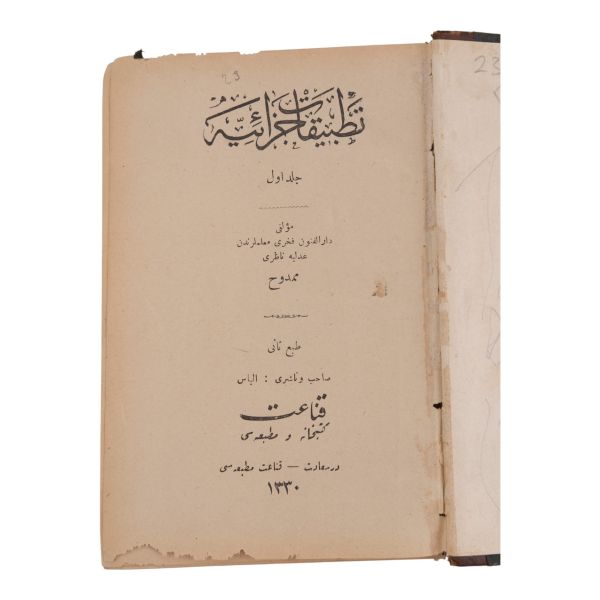 23
23
تطبیقات جزائیه
جلد اول
مؤلفی
دارالفنون فخری معلملرندن
عدلیه ناظری
ممدوح
طبع ثانی
صاحب و ناشری : الیاس
قناعت
كتبخانه و مطبعه‌سی
درسعادت — قناعت مطبعه‌سی
١٣٣٠